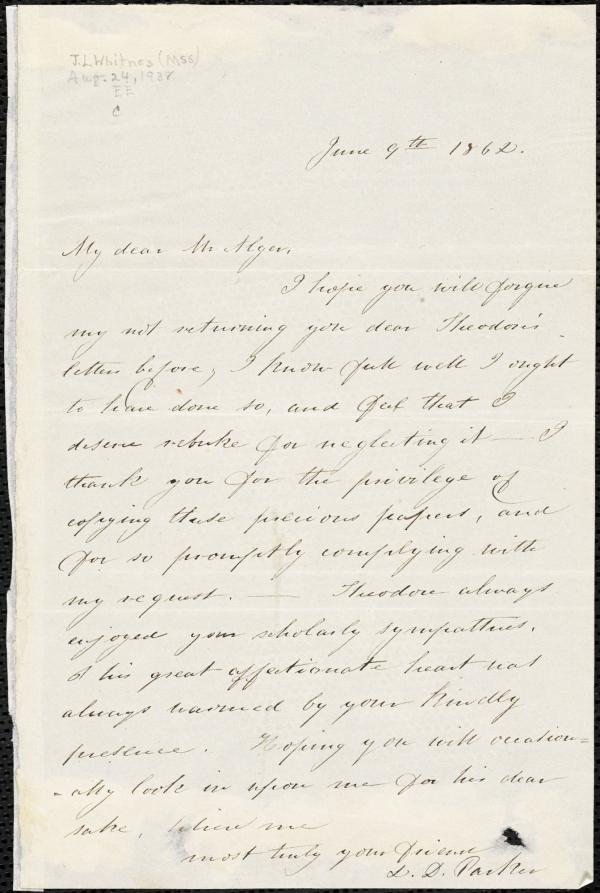 J.L. Whitney (Mss)
Aug. 24, 1938
EE
C
June 9th 1862.
My dear Mr Alger,
I hope you will forgive
my not returning you dear Theodore's
letters before, I know full well I ought
to have done so, and feel that I
deserve rebuke for neglecting it — I
thank you for the privilege of
copying these precious papers, and
for so promptly complying with
my request. — Theodore always
enjoyed your scholarly sympathies,
& his great affectionate heart was
always warmed by your kindly
presence. Hoping you will occasion=
=ally look in upon me for his dear
sake, believe me
most truly your friend
L. D. Parker